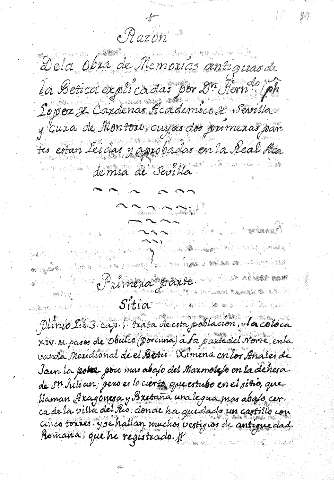 Razon
de la Obra de Memorias antiguas de
la Betica explicadas por Dn. Fern.do Jph
Lopez de Cardenas Academico de Sevilla
y Cura de Montoro, cuyas dos primeras par
tes estan leidas y aprobadas en la Real Aca
demia de Sevilla
Primera parte
Sitia
Plinio Lib. 3. cap. 1. trata de esta poblacion, y la coloca
XIV. M. pasos de Obulco (porcuna) a la parte del Norte, en la
vanda Meridional de el Betis. Ximena en los Anales de
Jaen la pone poco mas abajo del Marmolejo en la dehesa
de Sn. Julian; pero es lo cierto, que estubo en el sitio, que
llaman Aragonesa y Bretaña una legua mas abajo, cer
ca de la villa del Rio. donde ha quedado un castillo con
cinco torres: y se hallan muchos vestigios de antiguedad
Romana; que he registrado.